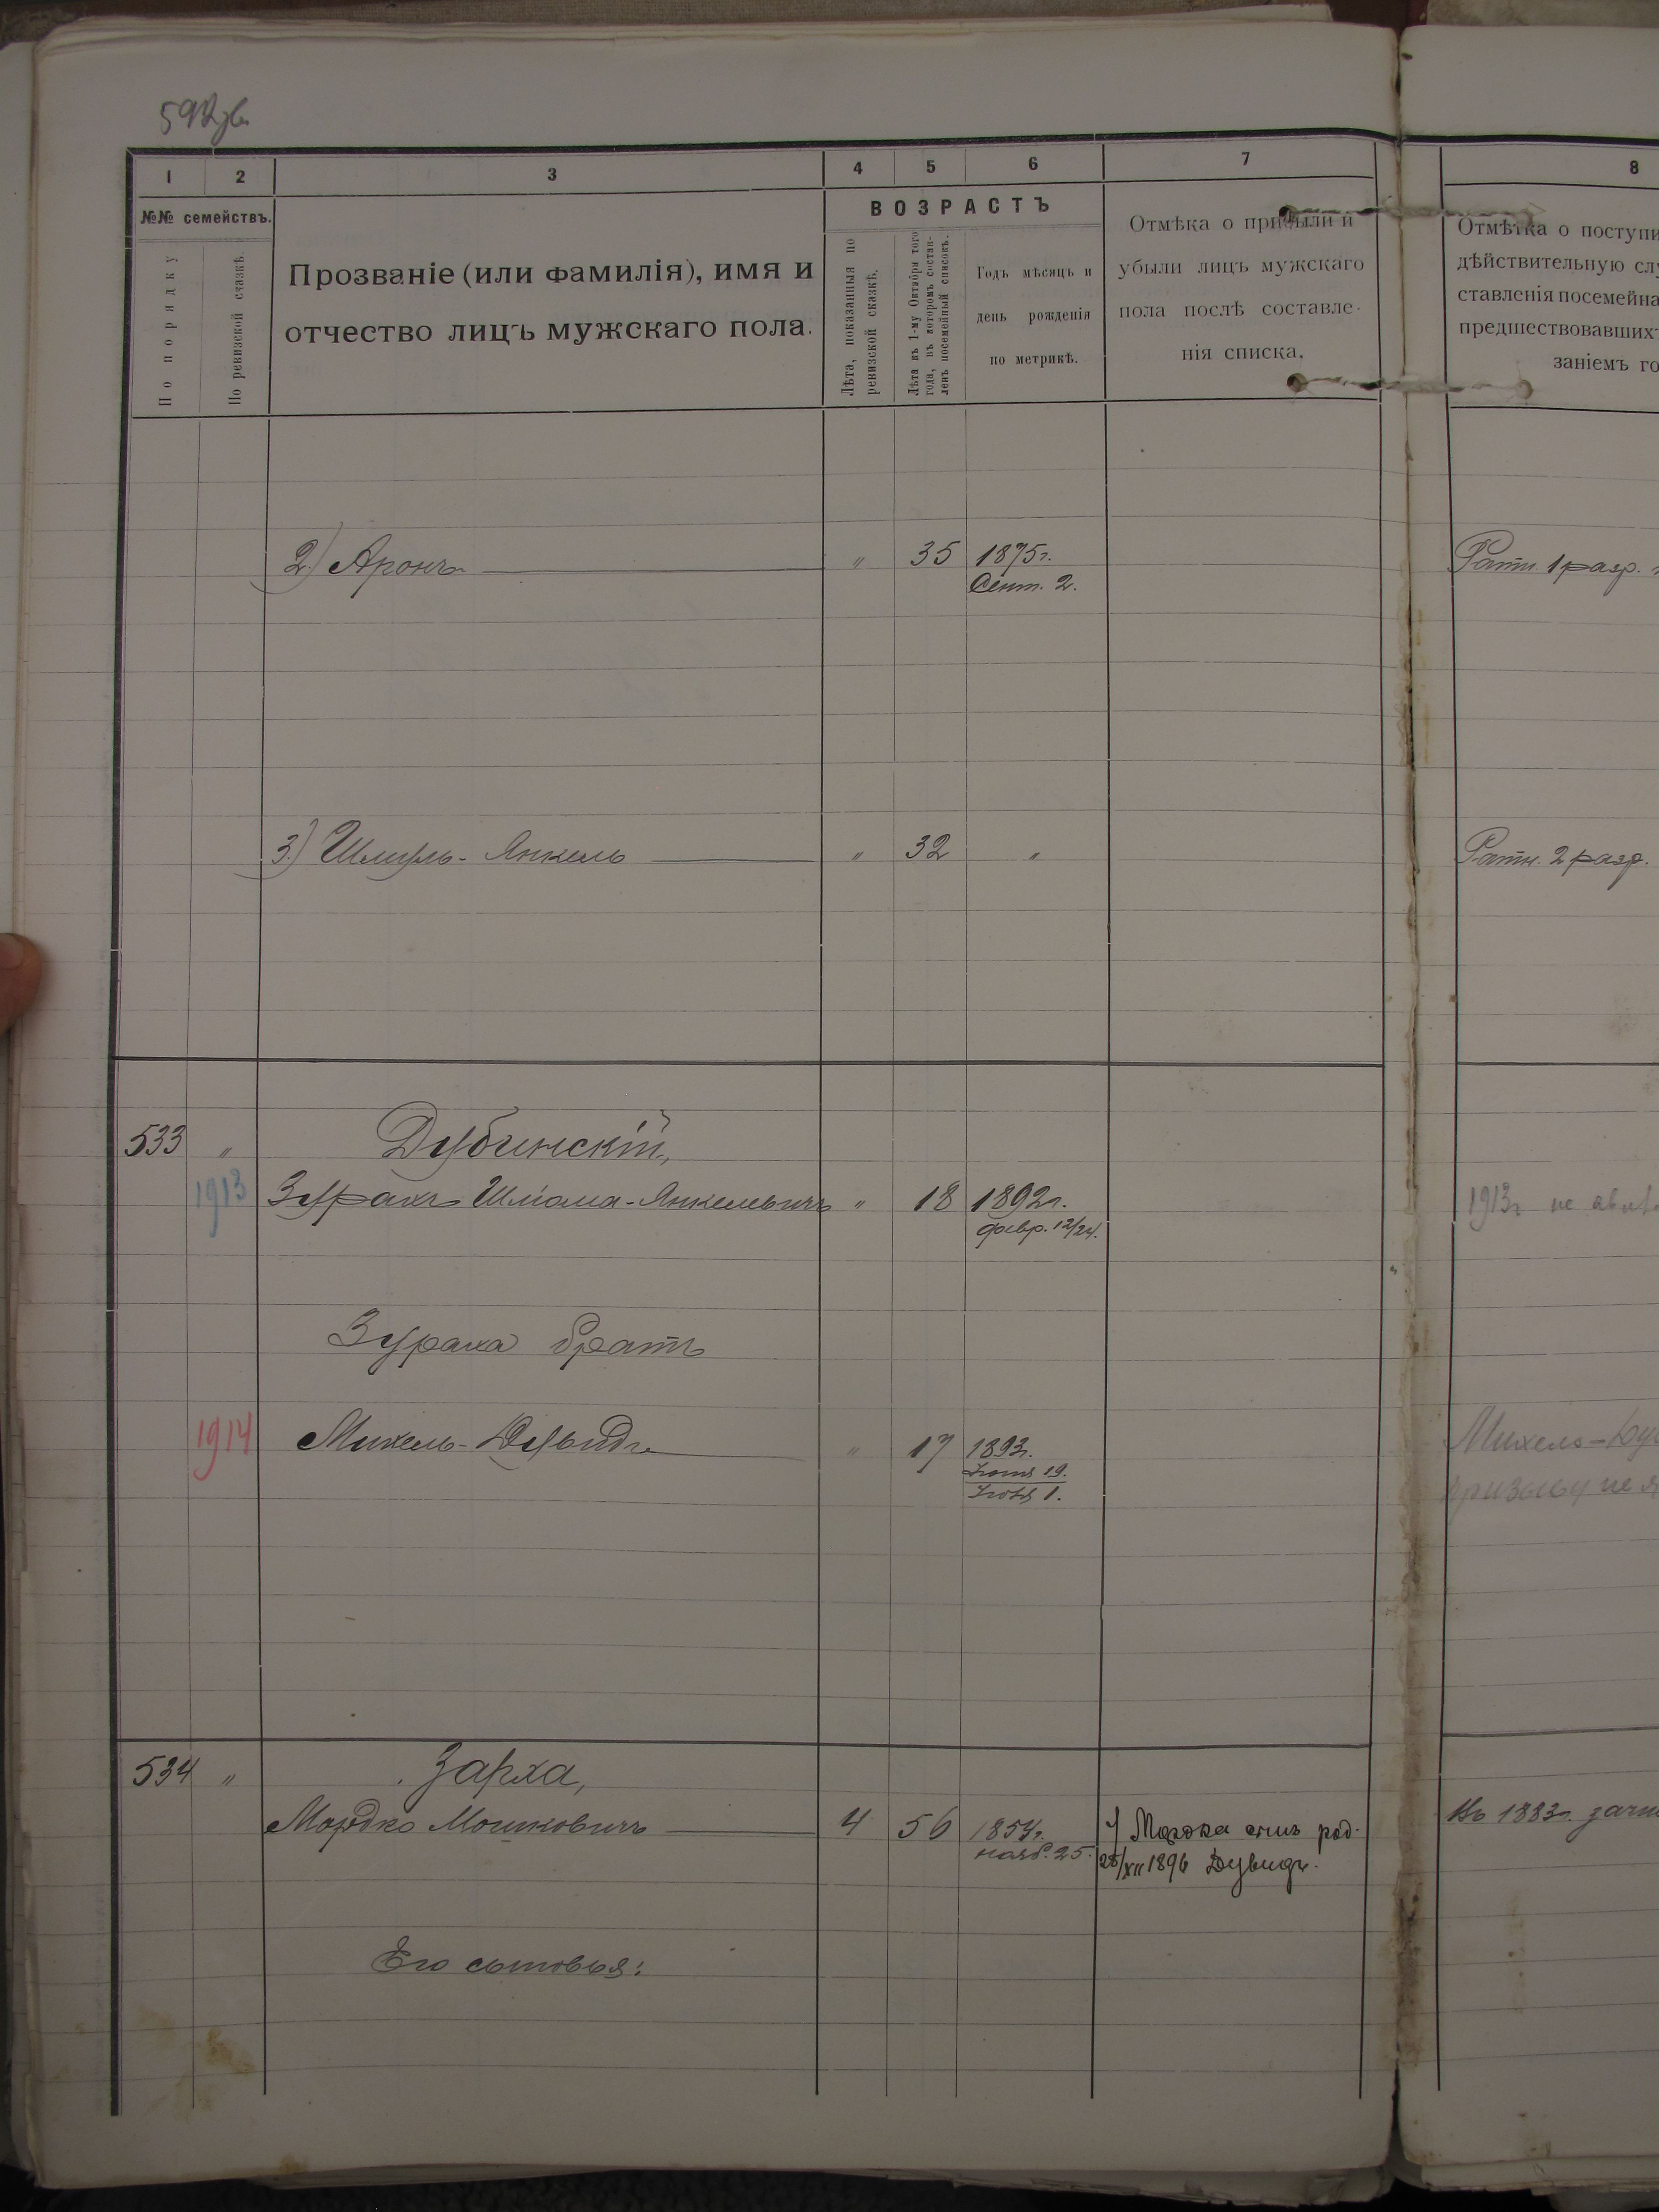 592 об.
1 2 3 4 5 6 7 8
№№ семействъ.
По порядку
По ревизской сказкѣ.
Прозваніе (или фамилія), имя и
отчество лицъ мужскаго пола.
ВОЗРАСТЪ
Лѣта, показанныя по
ревизской сказкѣ.
Лѣта къ 1-му Октября того
года, въ которомъ состав-
ленъ посемейный списокъ.
Годъ мѣсяцъ и
день рожденія
по метрикѣ.
Отмѣтка о прибыли и
убыли лицъ мужскаго
пола послѣ составле-
нія списка.
Отмѣтка о поступи
дѣйствительную слу
ставленія посемейна
предшествовавшихъ
заніемъ го
2.) Аронъ " 35 1875 г. Ратн. 1 разр.
Сент. 2.
3.) Шмуль-Янкель " 32 " Ратн. 2 разр.
533 " Дубинскій,
1913 Зурахъ Шлома-Янкелевичъ " 18 1892 г. 1913 г. не явил
февр. 12/24.
Зураха братъ
1914 Михель-Дувидъ " 17 1893 г. Михель-Ду
Іюня 19.
Іюля 1.
призыву не я
534 " Зарха,
Мордко Мошковичъ 4 56 1854 г. Мордка сынъ род. Въ 1883 г. зачи
нояб. 25. 25/XII 1896 Дувидъ.
Его сыновья: